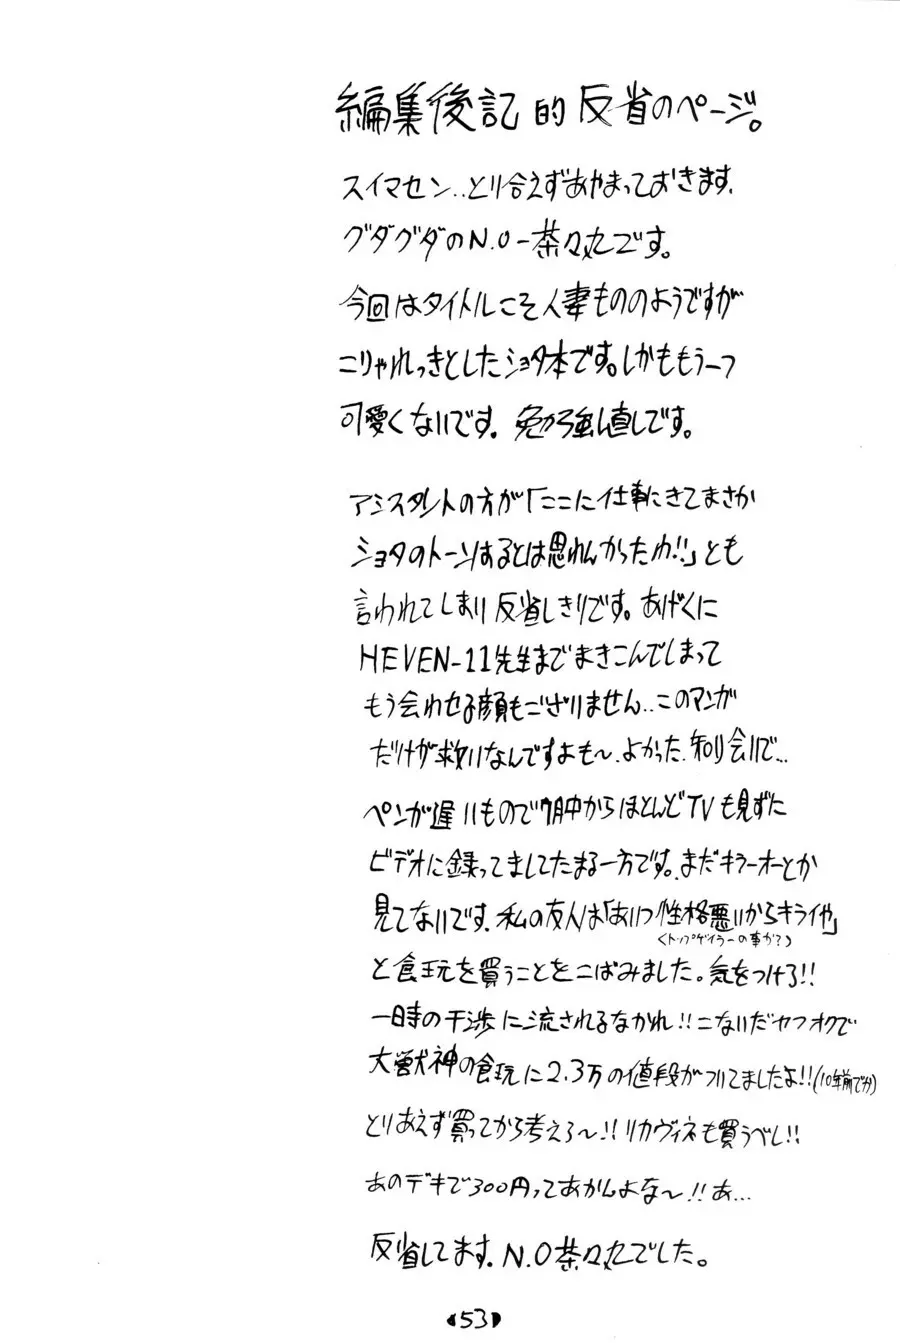 編集後記的反省のページ。
スイマセン‥とり合えずあやまっておきます.
グダグダのN.O-茶々丸です。
今回はタイトルこそ人妻もののようですが
こりゃれっきとしたショタ本です。しかももう一つ
可愛くないです. 勉強し直しです。
アシスタントの方が「ここに仕事にきてまさか
ショタのトーンはるとは思れんかったわ!!」とも
言われてしまい反省しきりです。あげくに
HEVEN-11先生までまきこんでしまって
もう会わせる顔もございません‥このマンガ
だけが救いなんですよも〜.よかった.知り会いで…
ペンが遅いもので7月中からほとんどTVも見ずに
ビデオに録ってましてたまる一方です。まだキラーオーとか
見てないです.私の友人は「あいつ性格悪いからキライや」
〈トップゲイラーの事か?〉
と食玩を買うことをこばみました。気をつけろ!!
一時の干渉に流されるなかれ!!こないだヤフオクで
大獣神の食玩に2.3万の値段がついてましたよ!!(10年前で分)
とりあえず買ってから考えろ〜!!リカヴィネも買うべし!!
あのデキで300円ってあかんよな〜!!あ…
反省してます.N.O茶々丸でした。
53